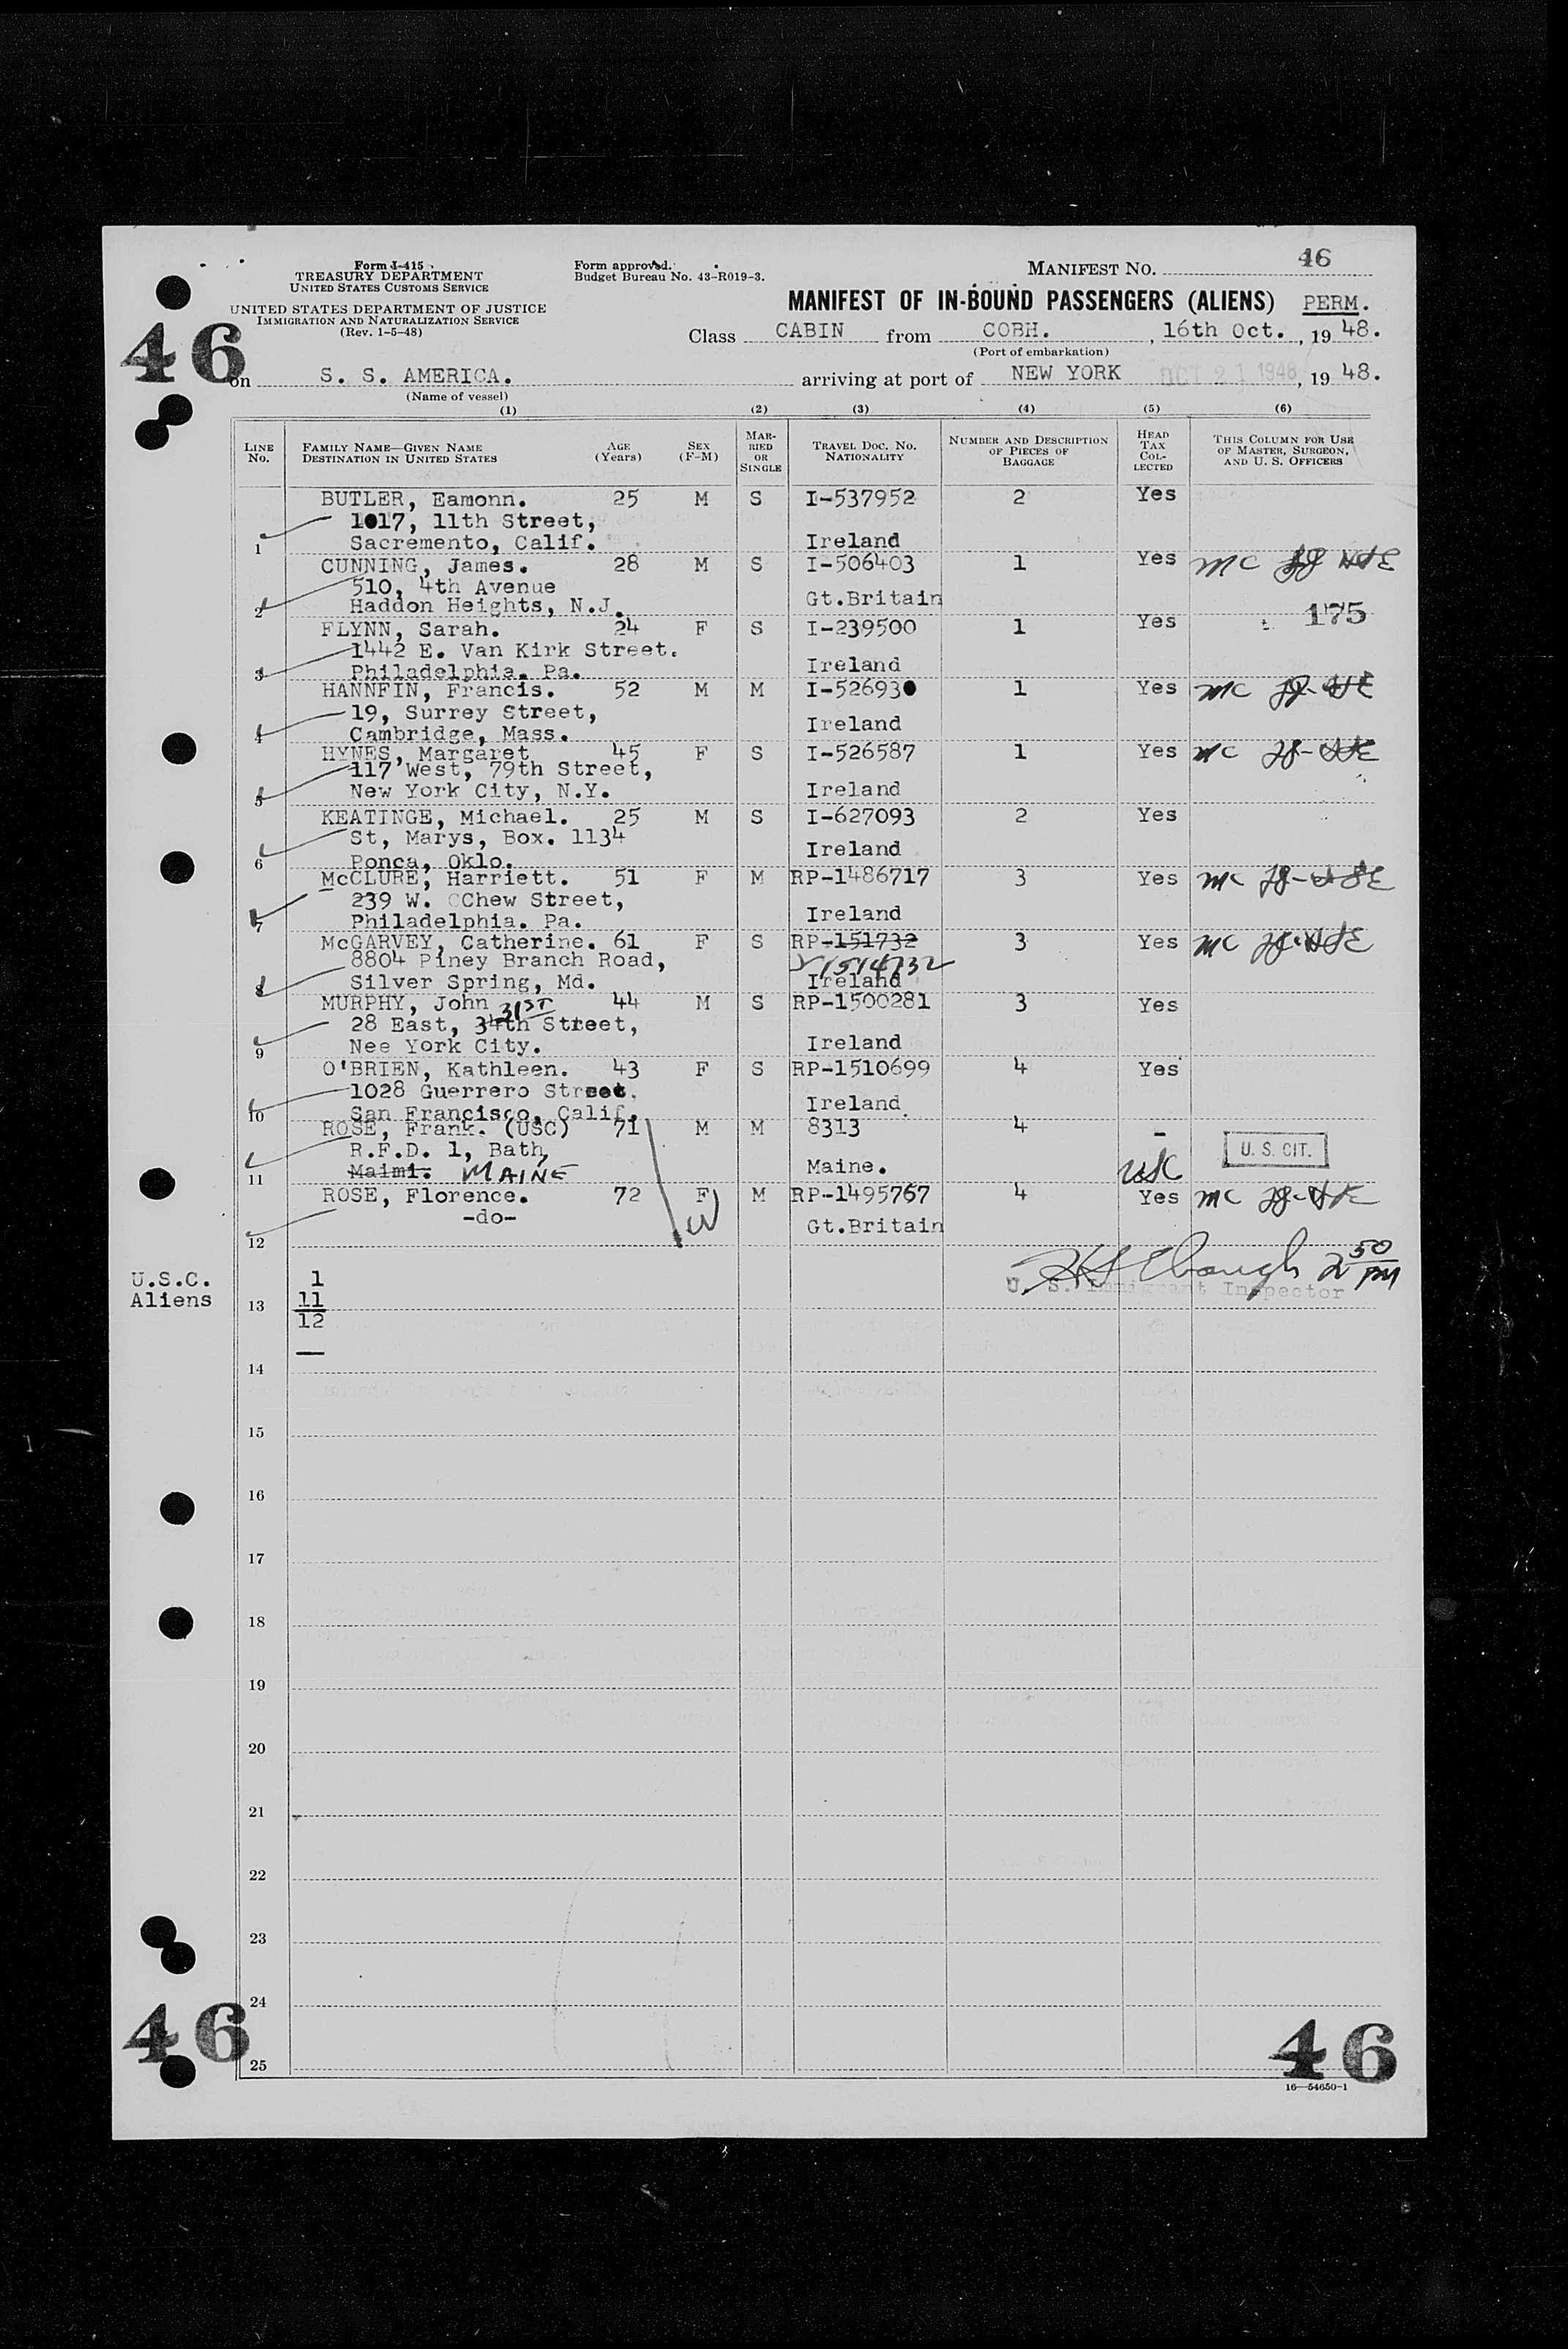 46
Form I-415
TREASURY DEPARTMENT
UNITED STATES CUSTOMS SERVICE
UNITED STATES DEPARTMENT OF JUSTICE
IMMIGRATION AND NATURALIZATION SERVICE
(Rev. 1-5-48)
Form approved.
Budget Bureau No. 43-R019-3.
MANIFEST NO. 46
MANIFEST OF IN-BOUND PASSENGERS (ALIENS) PERM.
Class CABIN from COBH. , 16th Oct. , 19 48.
(Port of embarkation)
on S. S. AMERICA. arriving at port of NEW YORK OCT 21 1948 , 19 48.
(Name of vessel)
(1) (2) (3) (4) (5) (6)
LINE No. FAMILY NAME—GIVEN NAME DESTINATION IN UNITED STATES AGE (Years) SEX (F-M) MARRIED OR SINGLE TRAVEL DOC. NO. NATIONALITY NUMBER AND DESCRIPTION OF PIECES OF BAGGAGE HEAD TAX COLLECTED THIS COLUMN FOR USE OF MASTER, SURGEON, AND U. S. OFFICERS
BUTLER, Eamonn. 25 M S I-537952 2 Yes
1017, 11th Street,
1 Sacremento, Calif. Ireland
CUNNING, James. 28 M S I-506403 1 Yes MC
510, 4th Avenue
2 Haddon Heights, N.J. Gt.Britain
FLYNN, Sarah. 24 F S I-239500 1 Yes 175
1442 E. Van Kirk Street.
3 Philadelphia. Pa. Ireland
HANNFIN, Francis. 52 M M I-52693 1 Yes MC
19, Surrey Street,
4 Cambridge, Mass. Ireland
HYNES, Margaret 45 F S I-526587 1 Yes MC
117 West, 79th Street,
5 New York City, N.Y. Ireland
KEATINGE, Michael. 25 M S I-627093 2 Yes
St, Marys, Box. 1134
6 Ponca, Oklo. Ireland
McCLURE, Harriett. 51 F M RP-1486717 3 Yes MC
239 W. CChew Street,
7 Philadelphia. Pa. Ireland
McGARVEY, Catherine. 61 F S RP-151732 3 Yes MC
8804 Piney Branch Road, 1514732
8 Silver Spring, Md. Ireland
MURPHY, John 44 M S RP-1500281 3 Yes
31ST
28 East, 34th Street,
9 Nee York City. Ireland
O'BRIEN, Kathleen. 43 F S RP-1510699 4 Yes
1028 Guerrero Street.
10 San Francisco, Calif. Ireland.
ROSE, Frank. (USC) 71 M M 8313 4 -
R.F.D. 1, Bath, U. S. CIT.
11 Maimi. MAINE Maine. USC
ROSE, Florence. 72 F M RP-1495767 4 Yes MC
-do- Gt.Britain
12
U.S.C. 1
Aliens 11
13
12
2 50 PM
U. S. Immigrant Inspector
14
15
16
17
18
19
20
21
22
23
24
25
46
46
16—54650-1